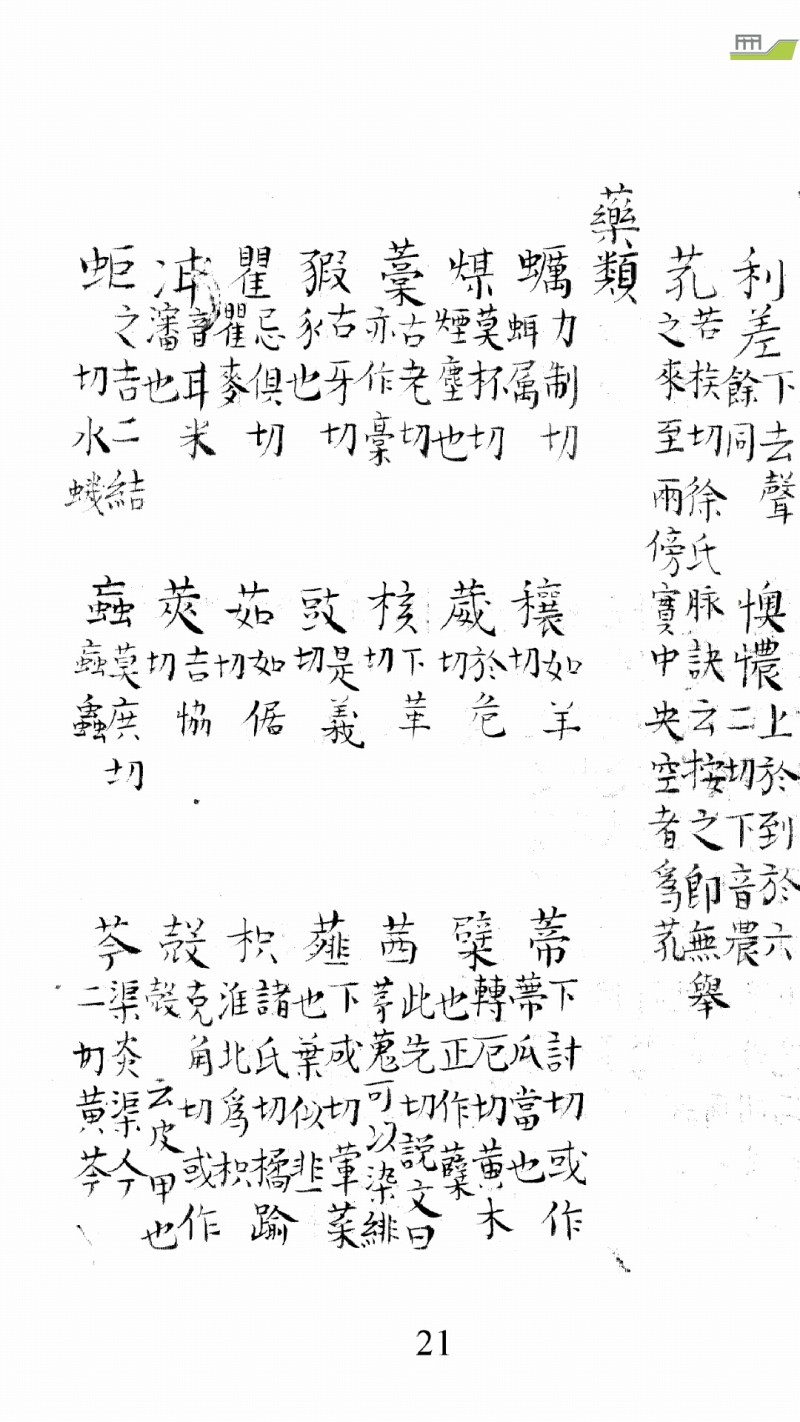 利差下去聲餘同 懊憹上於到於六二切下音農
芤若族切徐氏脉訣云按之卽無舉之來至兩傍實中央空者爲芤
藥類
蠣力制切蛽属 穰如羊切 蒂下討切或作蔕瓜當也
煤莫杯切煙塵也 葳於危切 檗轉厄切黃木也正作蘗
藁古老切亦作稾 核下革切 茜此先切說文曰茅蒐可以染緋
豭古牙切豕也 豉是義切 薤下戒切葷菜也葉似韭
瞿忌俱切瞿麥 茹如倨切 枳諸氏切橘踰淮北爲枳
音耳米瀋也 莢吉協切 殼克角切或作㱿云皮甲也
之吉二結切水 蝱莫庚切 芩渠炎渠今二切黃芩
21